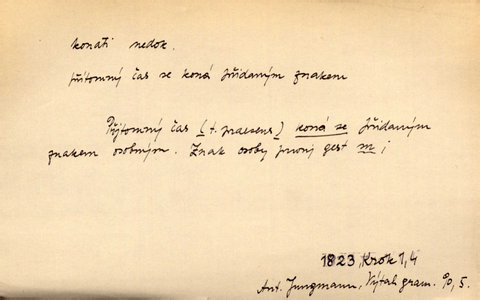 konati nedok.
přítomný čas se koná přidaným znakem
Přjtomný čas (t. praesens) koná se přidaným
znakem osobným. Znak osoby prwnj gest m;
1823 Krok 1,4
Ant. Jungmann, Výtah gram. 5.